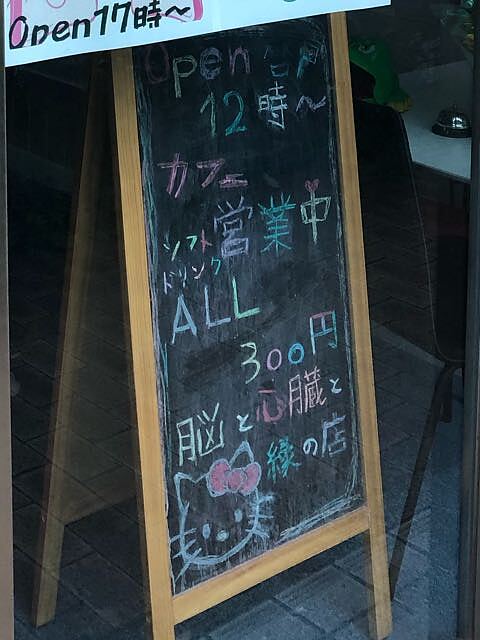 Open17時〜
Open
12時〜
カフェ
営業中
ソフト
ドリンク
ALL
300円
脳と心臓と
縁の店